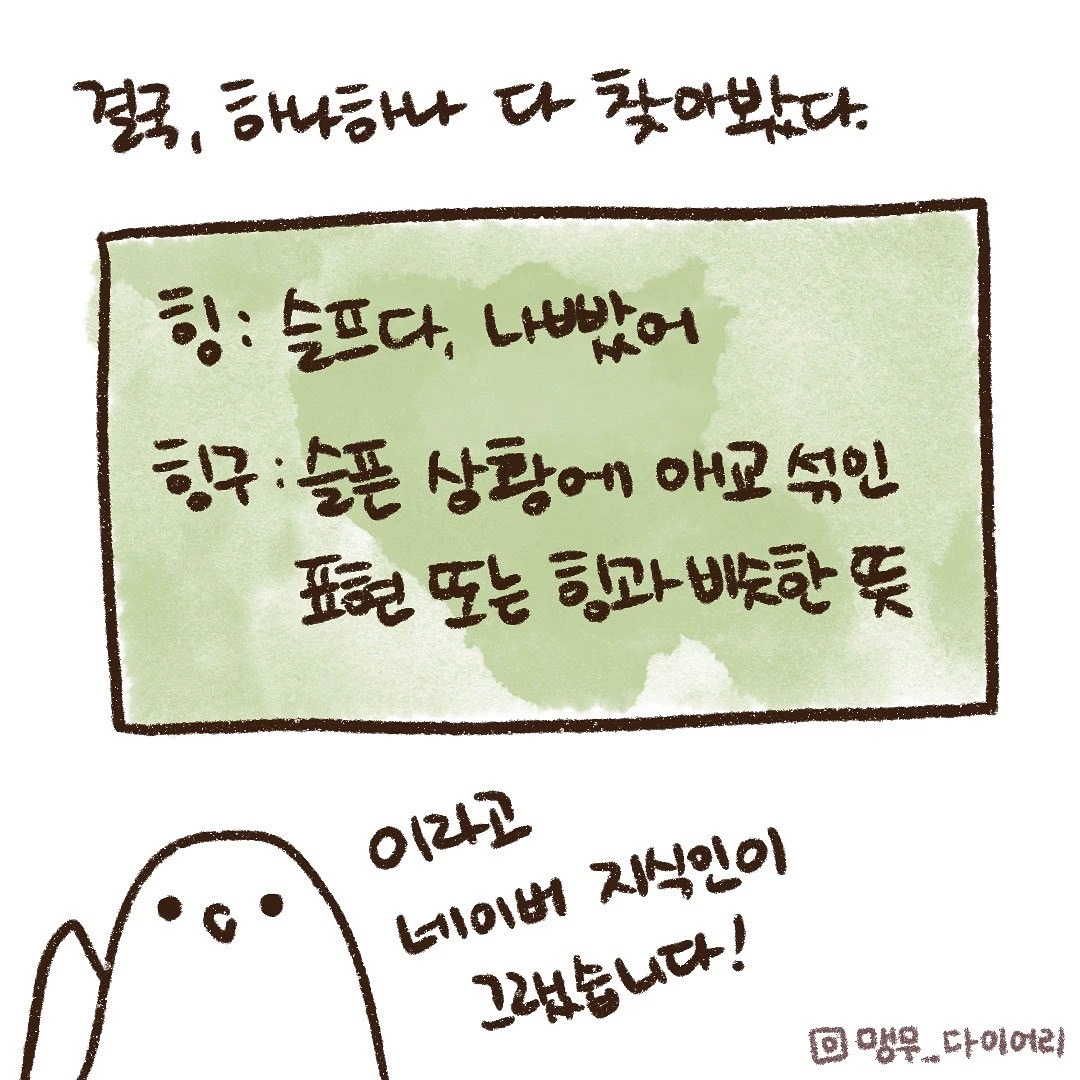 결국, 하나하나 다 찾아봤다.
힝: 슬프다, 나빴어
힝구: 슬픈 상황에 애교 섞인
표현 또는 힝과 비슷한 뜻
이라고
네이버 지식인이
그랬습니다!
맹무_다이어리